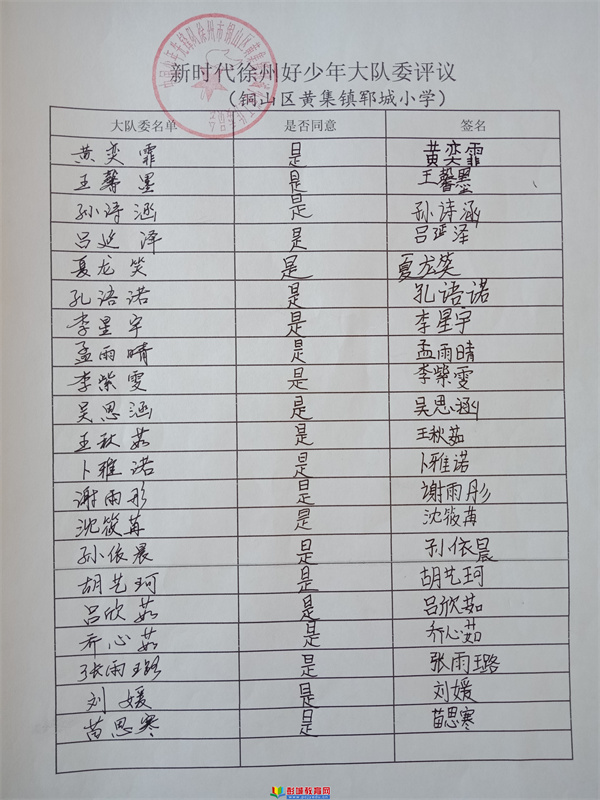 新时代徐州好少年大队委评议
（铜山区黄集镇郓城小学）
大队委名单 是否同意 签名
黄奕霏 是 黄奕霏
王馨墨 是 王馨墨
孙诗涵 是 孙诗涵
吕延泽 是 吕延泽
夏龙笑 是 夏龙笑
孔语诺 是 孔语诺
李星宇 是 李星宇
孟雨晴 是 孟雨晴
李紫雯 是 李紫雯
吴思涵 是 吴思涵
王秋茹 是 王秋茹
卜雅诺 是 卜雅诺
谢雨彤 是 谢雨彤
沈筱苒 是 沈筱苒
孙依晨 是 孙依晨
胡艺珂 是 胡艺珂
吕欣茹 是 吕欣茹
乔心茹 是 乔心茹
张雨璐 是 张雨璐
刘媛 是 刘媛
苗思寒 是 苗思寒
彭城教育网